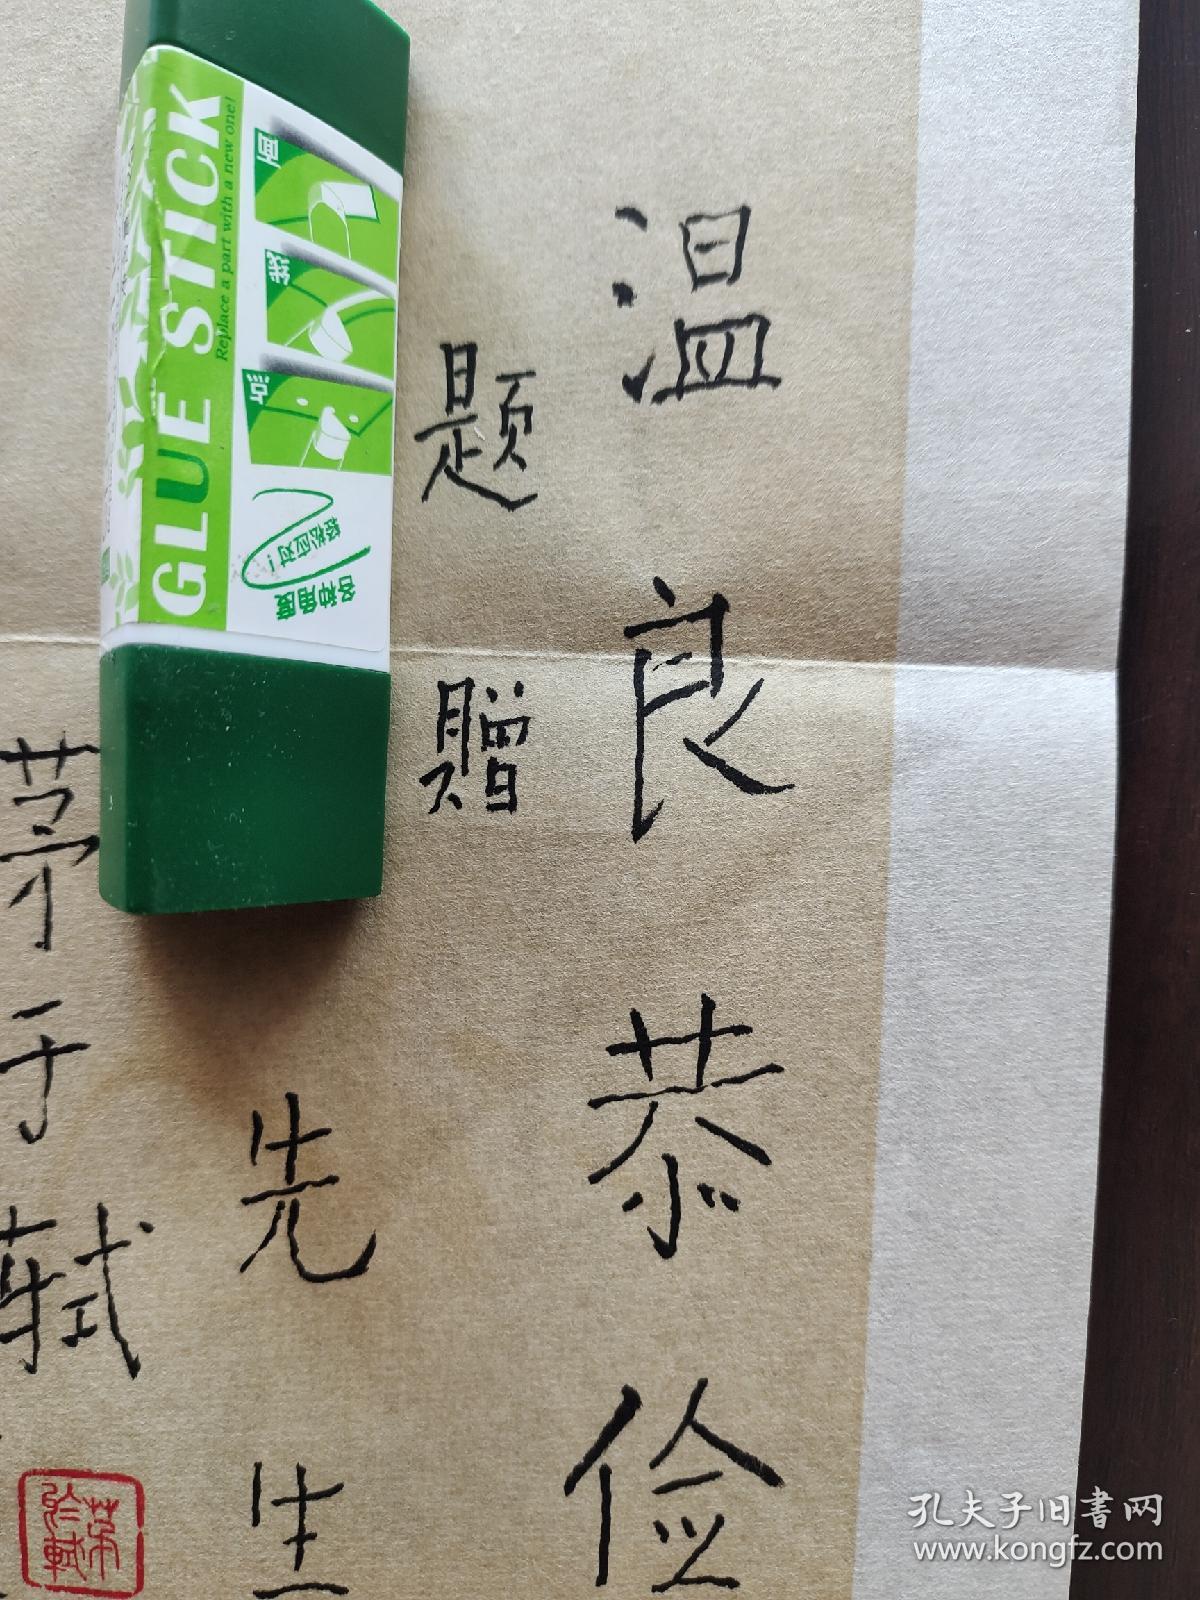 温良恭俭
题赠
先生
茅于轼
茅于轼
GLUE STICK
Replace a part with a new one!
面
线
点
各种角度
轻松应对！
孔夫子旧书网
www.kongfz.com